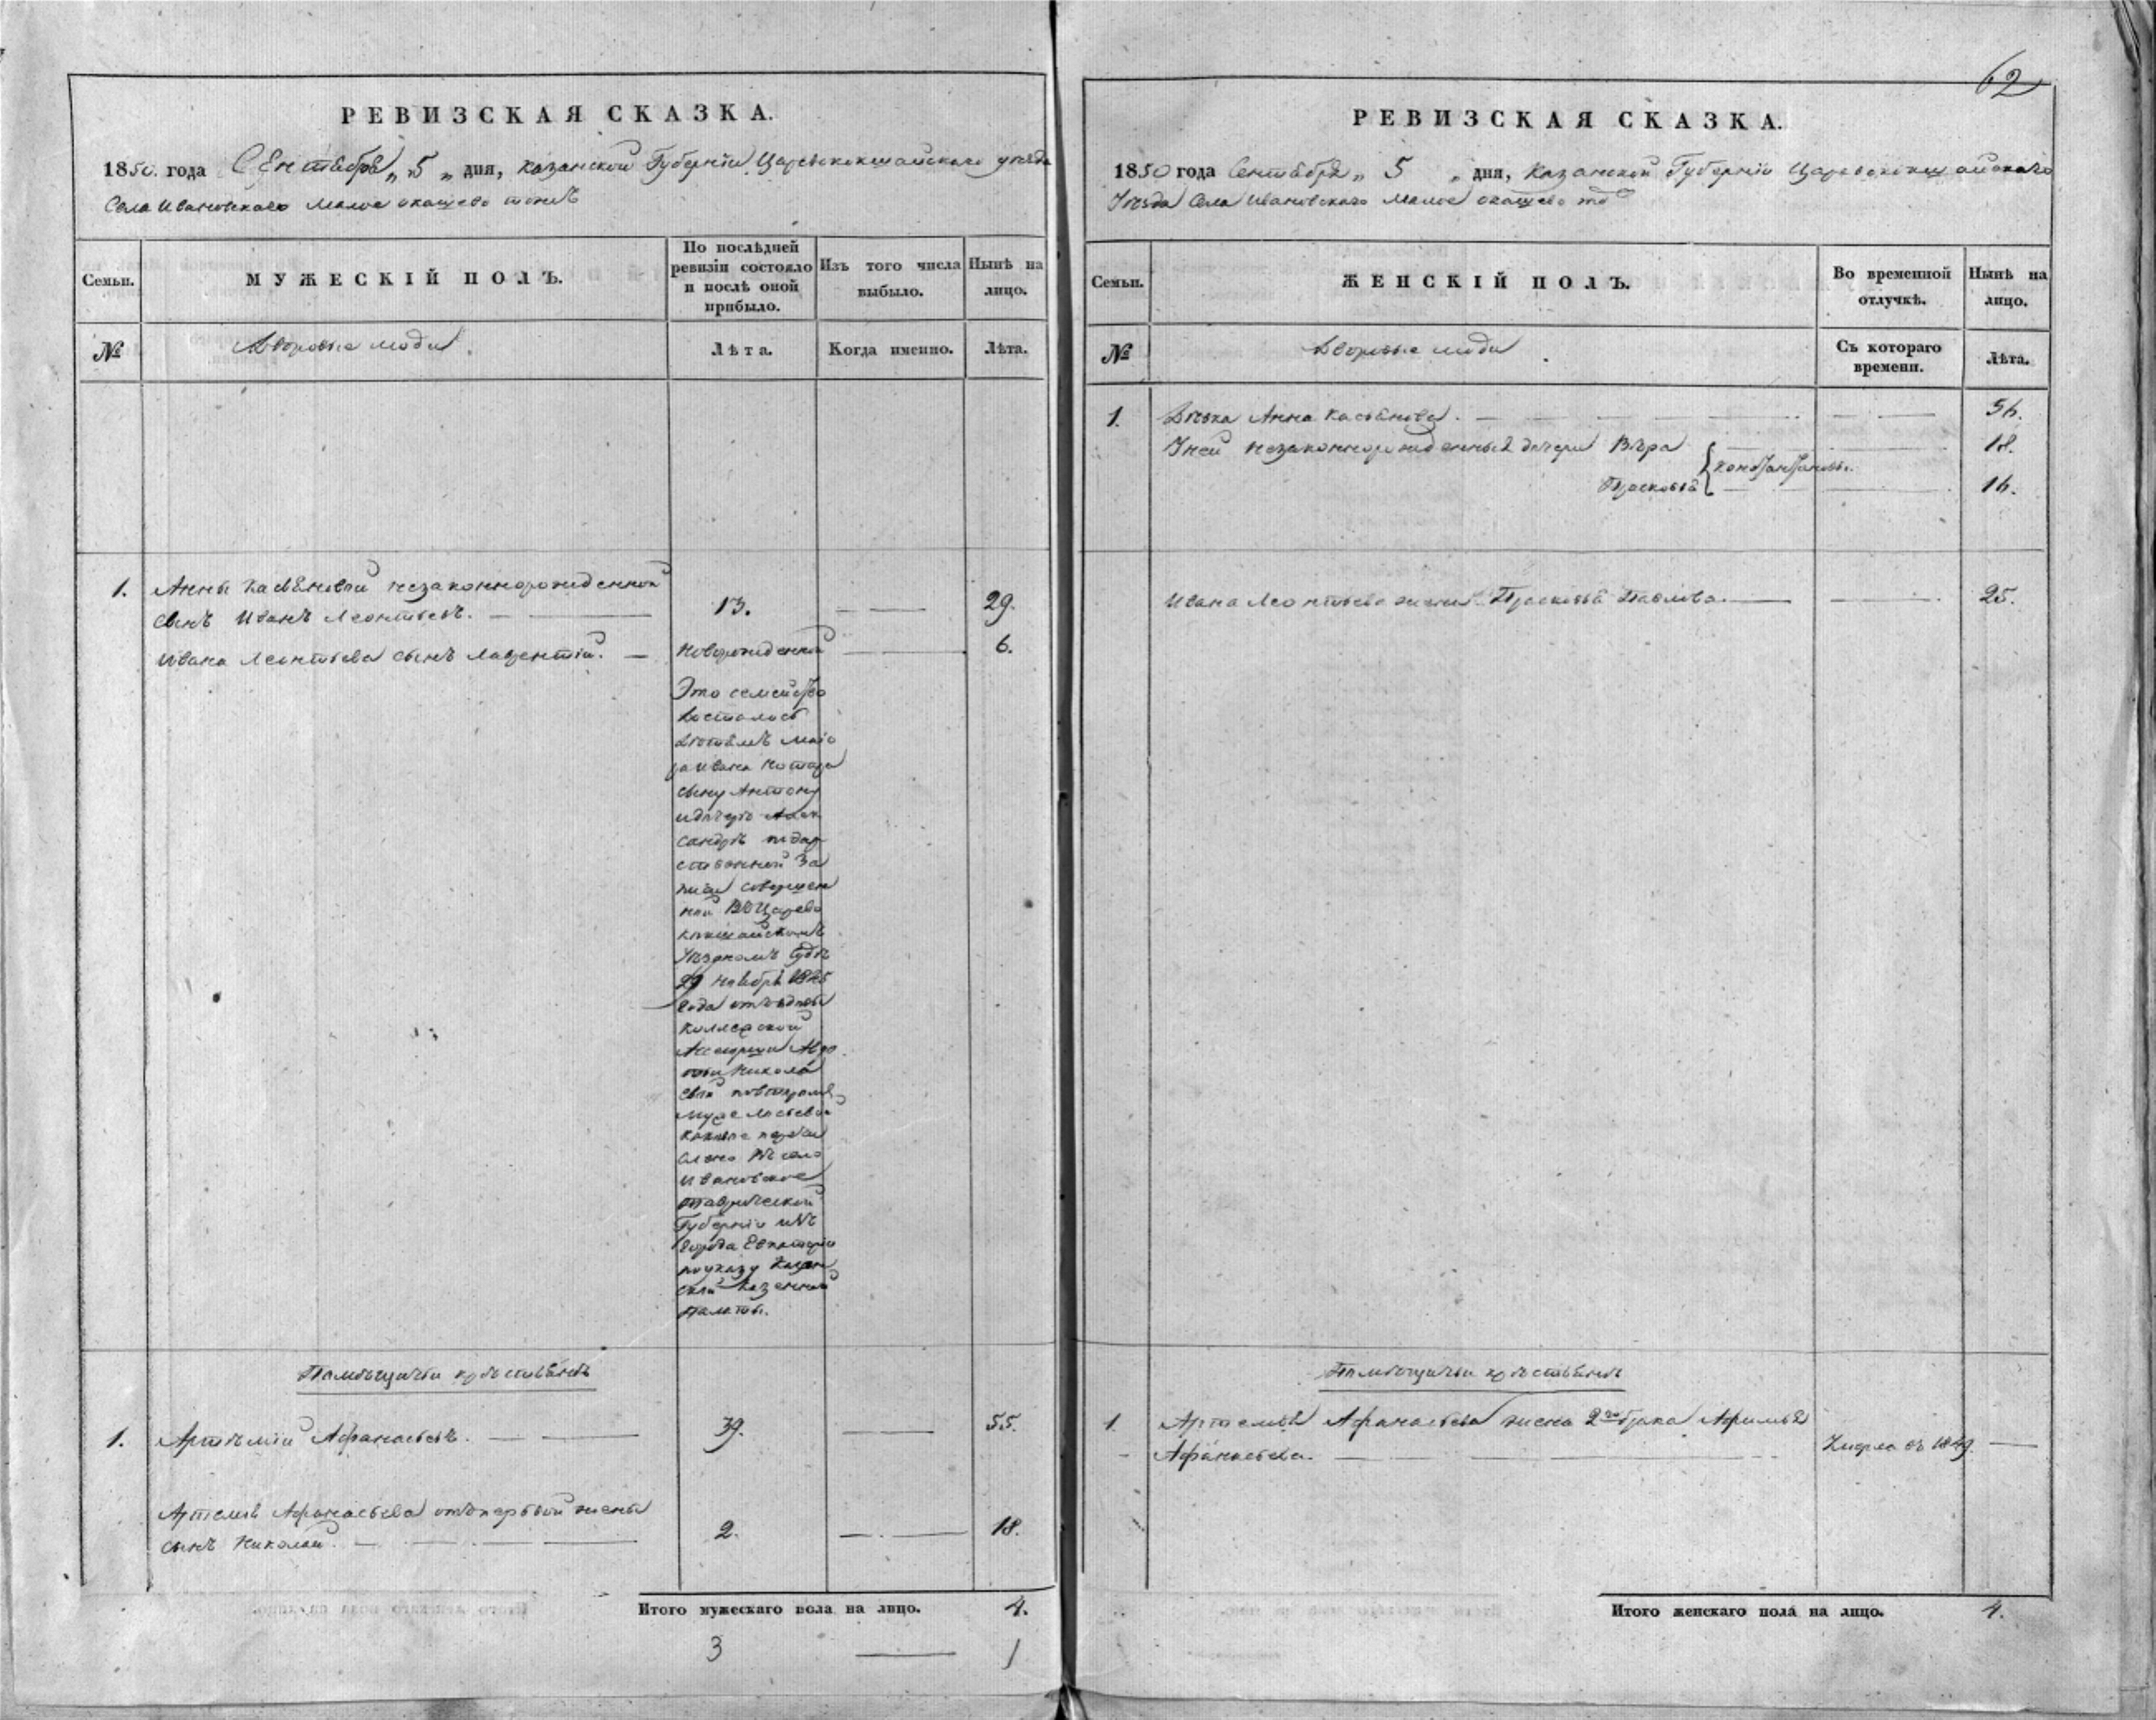 62
РЕВИЗСКАЯ СКАЗКА.
1850. года Сентября „ 5 „ дня, Казанской Губерніи Царевококшайского уезда
Села Ивановскаго Малое акашево тожъ
Семьи.
МУЖЕСКІЙ ПОЛЪ.
По послѣдней ревизіи состояло и послѣ оной прибыло.
Изъ того числа выбыло.
Нынѣ на лицо.
№
Дворовые люди.
Лѣта.
Когда именно.
Лѣта.
1. Анны Касьяновой незаконнорожденной
сынъ Иванъ Леонтьевъ. 13. 29.
Ивана Леонтьева сынъ Лаврентій. Новорожденной 6.
Это семейство
досталось
дѣтямъ маіо
ра Ивана
сыну Антону
и дочери Алек
сандрѣ по дар
ственной за
писи совершен
ной въ Царево
кокшайскомъ
Уездномъ Судѣ
29 Ноября
года отъ вдовы
Коллежской
Ассесорши Авдо
тьи Никола
евой по второму
мужу
каковые перечи
слено въ село
Ивановское
Таврической
Губерніи изъ
города Евпаторіи
по указу Казан
ской Казенной
палаты.
Помещичьи крестьяне
1. Артемій Афанасьевъ. 39. 55.
Артемья Афанасьева отъ первой жены
сынъ Николай. 2. 18.
Итого мужескаго пола на лицо. 4.
3 1
РЕВИЗСКАЯ СКАЗКА.
1850 года Сентября „ 5 „ дня, Казанской Губерніи Царевококшайскаго
Уезда Села Ивановскаго Малое акашево тож
Семьи.
ЖЕНСКІЙ ПОЛЪ.
Во временной отлучкѣ.
Нынѣ на лицо.
№
Дворовые люди.
Съ котораго времени.
Лѣта.
1. Девка Анна Касьянова. 56.
У ней незаконнорожденныя дочери Вера 18.
Константиновы.
Прасковья 16.
Ивана Леонтьева жена Прасковья Павлова. 25.
Помещичьи крестьяне
1. Артемья Афанасьева жена 2го брака Афимья
Афанасьева. Умерла въ 1849.
Итого женскаго пола на лицо. 4.